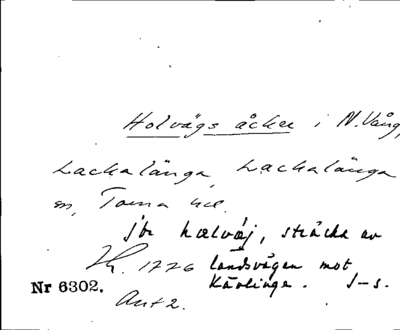 Holvägs åker i N. Vång,
Lackalänga, Lackalänga
sn, Torna hd.
jfr hælvaj, sträcka av
1776 landsvägen mot
Nr 6302. Kävlinge. J-s.
Ant 2.